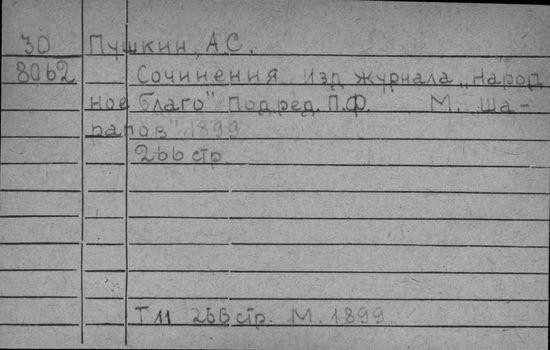 30 Пушкин, А.С.
8062 Сочинения Изд журнала „Народ
ное благо" Под ред. П.Ф. М. Ша-
рапов" 1899
266 стр
Т 11 266 стр. М. 1899